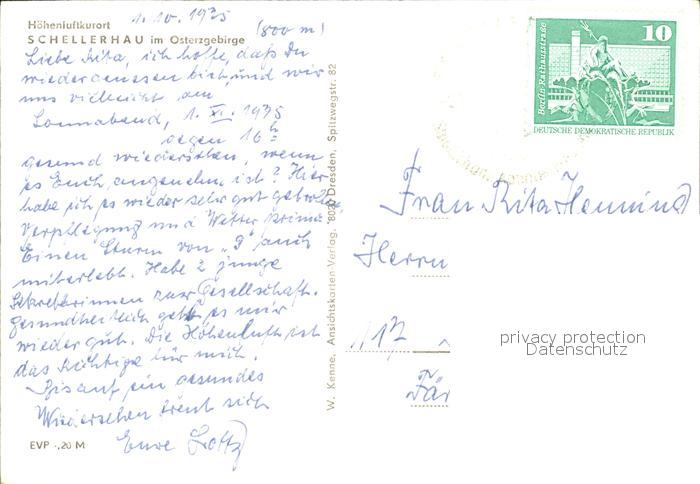 1.10.1975
Höhenluftkurort (800 m)
SCHELLERHAU im Osterzgebirge
Liebe Rita, ich hoffe, daß Du
wiedergenesen bist, und wir
uns vielleicht am
Sonnabend, 1. XI. 1975
gegen 16 h
gesund wiedersehen, wenn
es Euch angenehm ist? Hier
habe ich es wieder sehr gut getroffen,
Verpflegung und Wetter prima.
Einen Sturm von "9" auch
miterlebt. Habe 2 junge
Sekretärinnen zur Gesellschaft.
Gesundheitlich geht es mir
wieder gut. Die Höhenluft ist
das Richtige für mich.
Bis auf ein gesundes
Wiedersehen freut sich
Eure
EVP -,20 M
W. Kenne, Ansichtskarten Verlag, 8020 Dresden, Spitzwegstr. 82
10
Berlin-Rathausstraße
DEUTSCHE DEMOKRATISCHE REPUBLIK
Frau Rita Henning
Herrn
117
Fär
privacy protection
Datenschutz